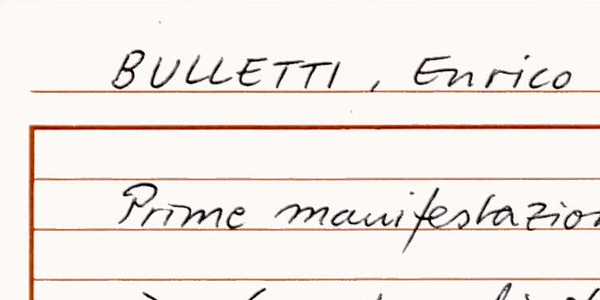 BULLETTI, Enrico
Prime manifestazion